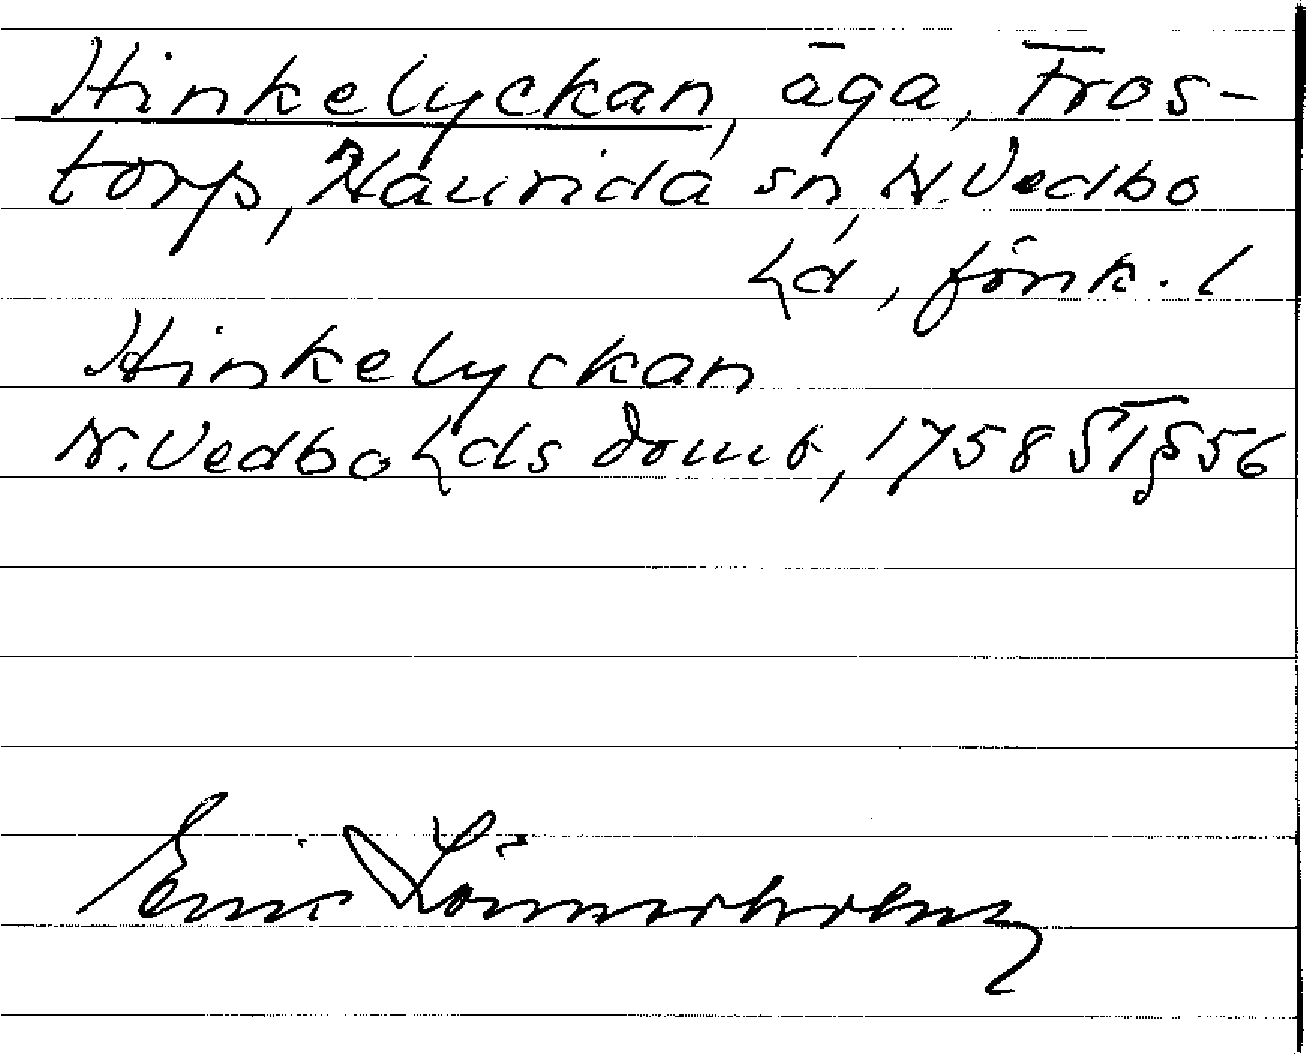 Hinkelyckan, äga, Fros-
torp, Haurida sn, N. Vedbo
hd, Jönk. l
Hinkelyckan
N. Vedbo hds domb, 1758 ST § 56
Eric Lönnerholm